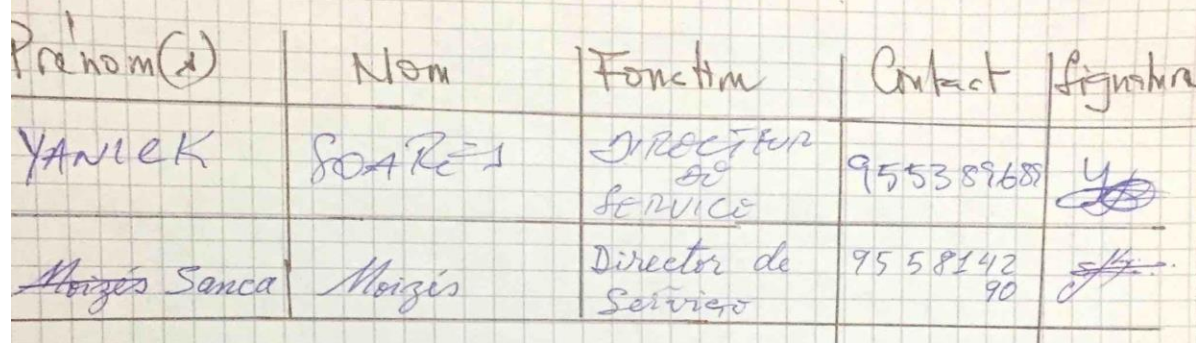 Prénom(s) Nom Fonction Contact Signature
YANICK SOARES DIRECTEUR DE SERVICE 955389689
Moizés Sanca Moizés Director de Serviço 955814290